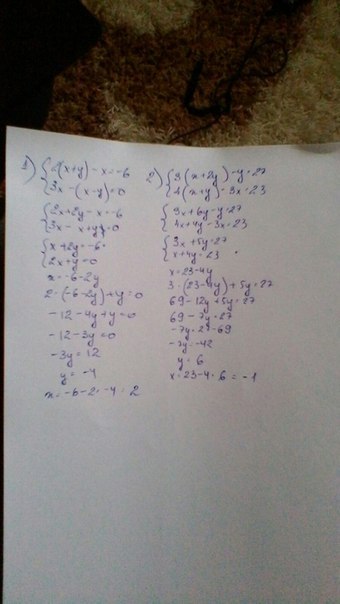 1) {2(x+y)-x=-6
{3x-(x-y)=0
{2x+2y-x=-6
{3x-x+y=0
{x+2y=-6
{2x+y=0
x=-6-2y
2·(-6-2y)+y=0
-12-4y+y=0
-12-3y=0
-3y=12
y=-4
x=-6-2·-4=2
2) {3(x+2y)-y=27
{4(x+y)-3x=23
{3x+6y-y=27
{4x+4y-3x=23
{3x+5y=27
{x+4y=23
x=23-4y
3·(23-4y)+5y=27
69-12y+5y=27
69-7y=27
-7y=27-69
-7y=-42
y=6
x=23-4·6=-1